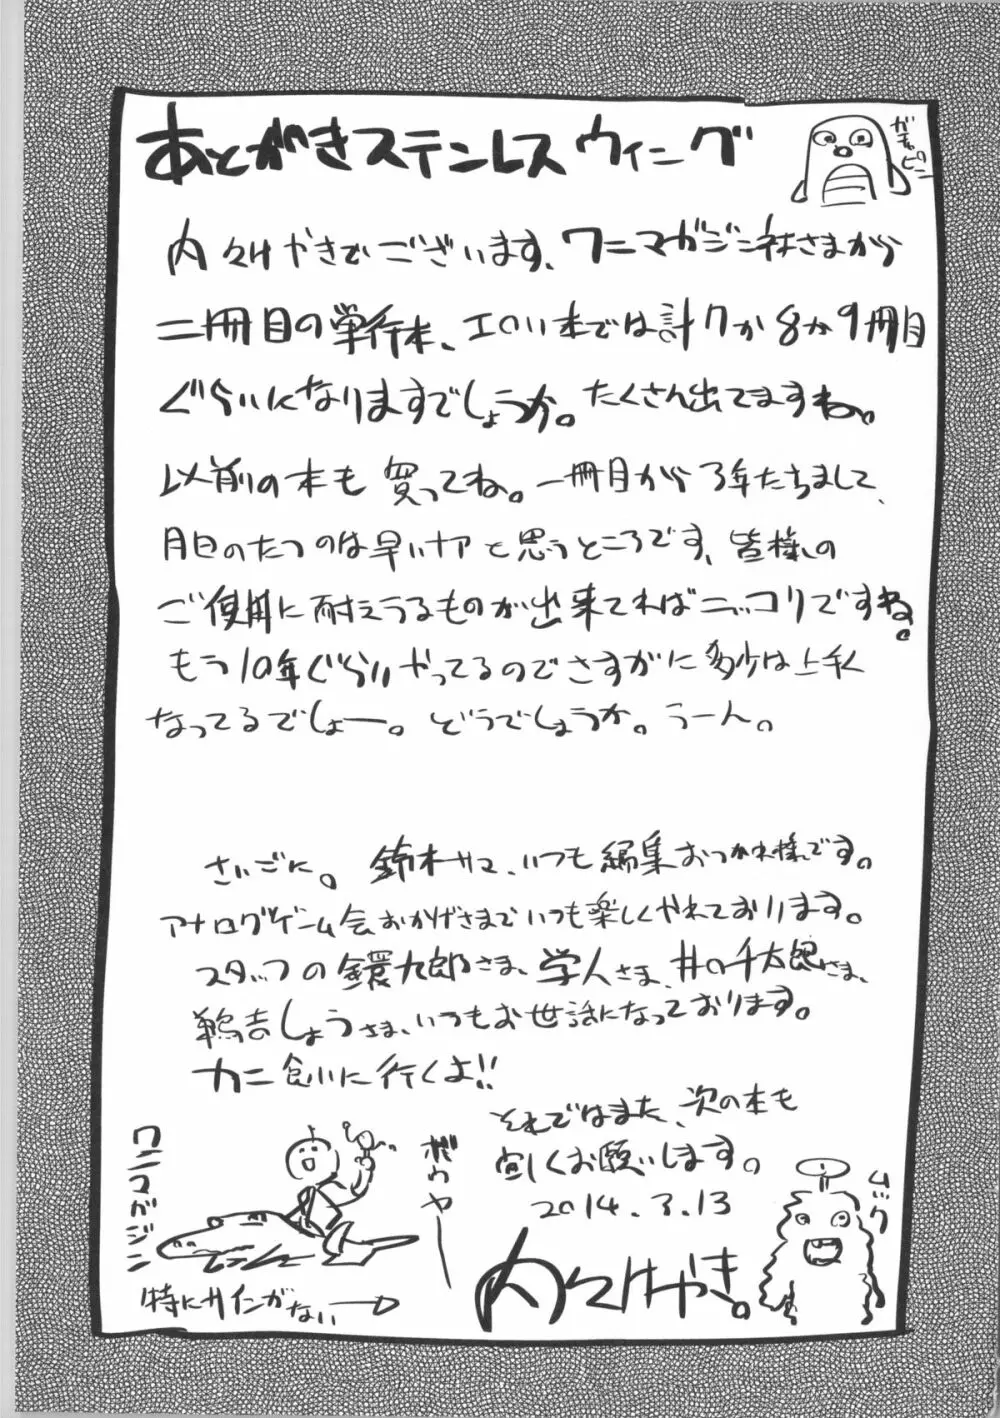 あとがきステンレスウィニング
ガチャピン
内々けやきでございます、ワニマガジン社さまから
二冊目の単行本、エロい本では計7か8か9冊目
ぐらいになりますでしょうか。たくさん出てますね。
以前の本も買ってね。一冊目から3年たちまして、
月日のたつのは早いナアと思うところです、皆様の
ご使用に耐えうるものが出来てればニッコリですね。
もう10年ぐらいやってるのでさすがに多少は上手く
なってるでしょー。どうでしょうか。うーん。
さいごに。鈴木サマ、いつも編集おつかれ様です。
アナログゲーム会おかげさまでいつも楽しくやれております。
スタッフの鐶九郎さま、学人さま、井の千太郎さま、
鵜吉しょうさま、いつもお世話になっております。
カニ食いに行くよ!!
それではまた、次の本も
宜しくお願いします。
2014.3.13
内々けやき。
ワニマガジン
ボウヤー
特にサインがない
ムック